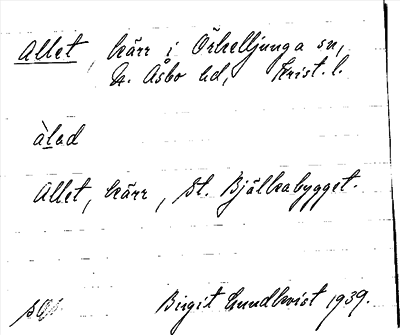 Allet, kärr i Örkelljunga sn,
N. Åsbo hd, Krist. l.
àlad
Allet, kärr, St. Bjälkabygget.
Birgit Lundkvist 1939.